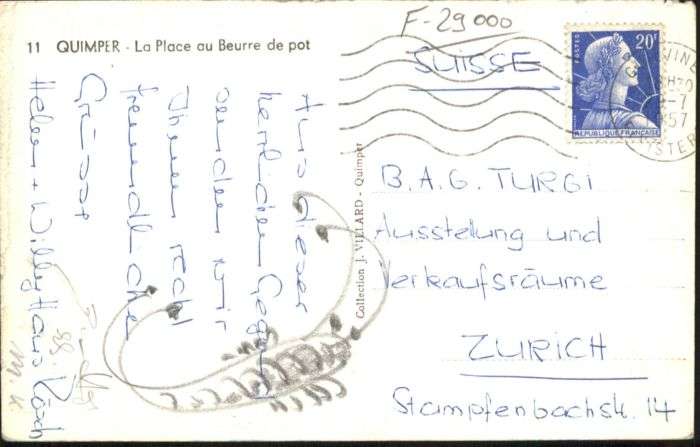 11 QUIMPER - La Place au Beurre de pot
F-29000
SUISSE
POSTES
20F
REPUBLIQUE FRANÇAISE
57
Aus dieser
herrlichen Gegend
senden wir
Ihnen recht
freundliche
Grüsse
Helen + Willy Haus
Collection J. VILLARD - Quimper
B.A.G. TURGI
Ausstelung und
Verkaufsräume
ZURICH
Stampfenbachstr. 14